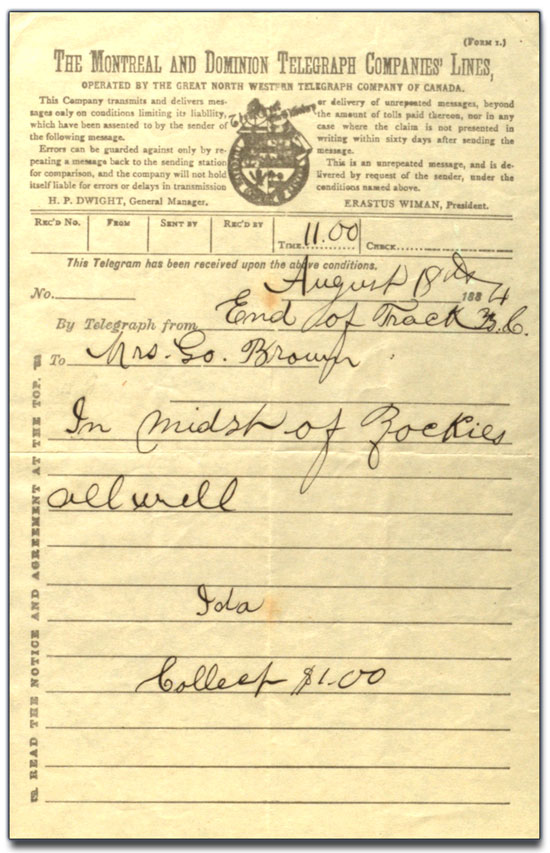 (FORM 1.)
THE MONTREAL AND DOMINION TELEGRAPH COMPANIES' LINES,
OPERATED BY THE GREAT NORTH WESTERN TELEGRAPH COMPANY OF CANADA.
This Company transmits and delivers mes-
sages only on conditions limiting its liability,
which have been assented to by the sender of
the following message.
Errors can be guarded against only by re-
peating a message back to the sending station
for comparison, and the company will not hold
itself liable for errors or delays in transmission
H. P. DWIGHT, General Manager.
or delivery of unrepeated messages, beyond
the amount of tolls paid thereon, nor in any
case where the claim is not presented in
writing within sixty days after sending the
message.
This is an unrepeated message, and is de-
livered by request of the sender, under the
conditions named above.
ERASTUS WIMAN, President.
REC'D NO. FROM SENT BY REC'D BY TIME 11.00 CHECK
This Telegram has been received upon the above conditions.
No. August 18th 1884
By Telegraph from End of Track B.C.
To Mrs. Go. Brown
In midst of Rockies
all well
Ida
Collect $1.00
READ THE NOTICE AND AGREEMENT AT THE TOP.